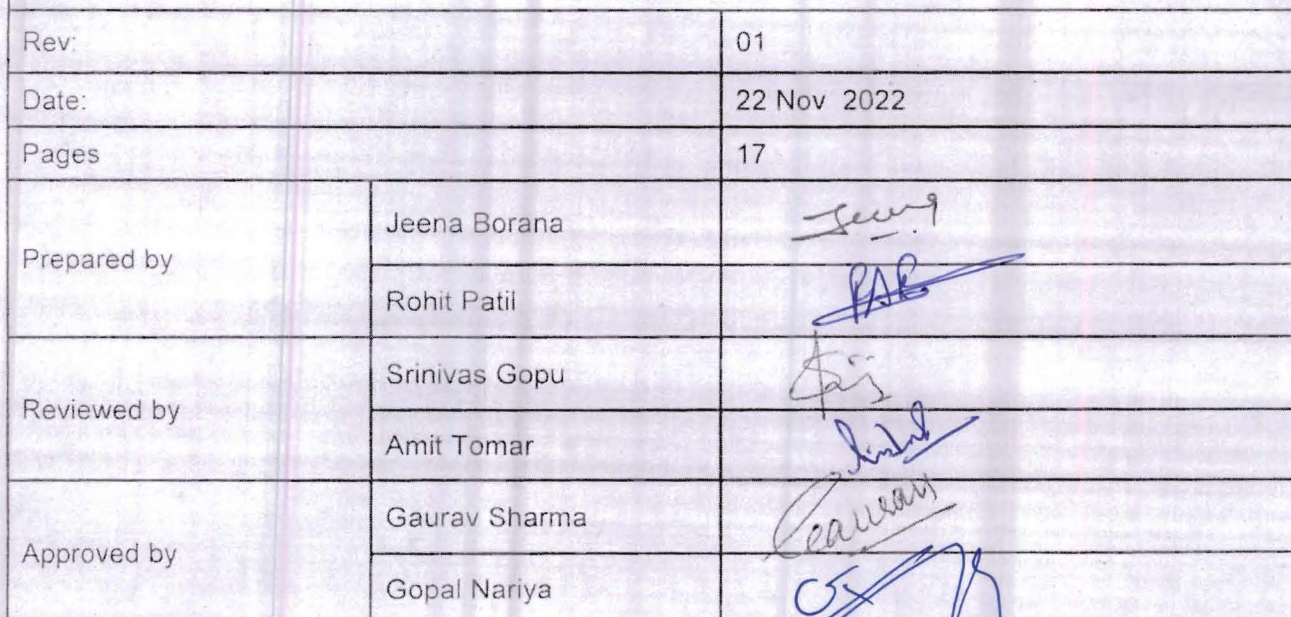 Rev: 01
Date: 22 Nov 2022
Pages 17
Prepared by
Jeena Borana
Rohit Patil
Reviewed by
Srinivas Gopu
Amit Tomar
Approved by
Gaurav Sharma
Gopal Nariya